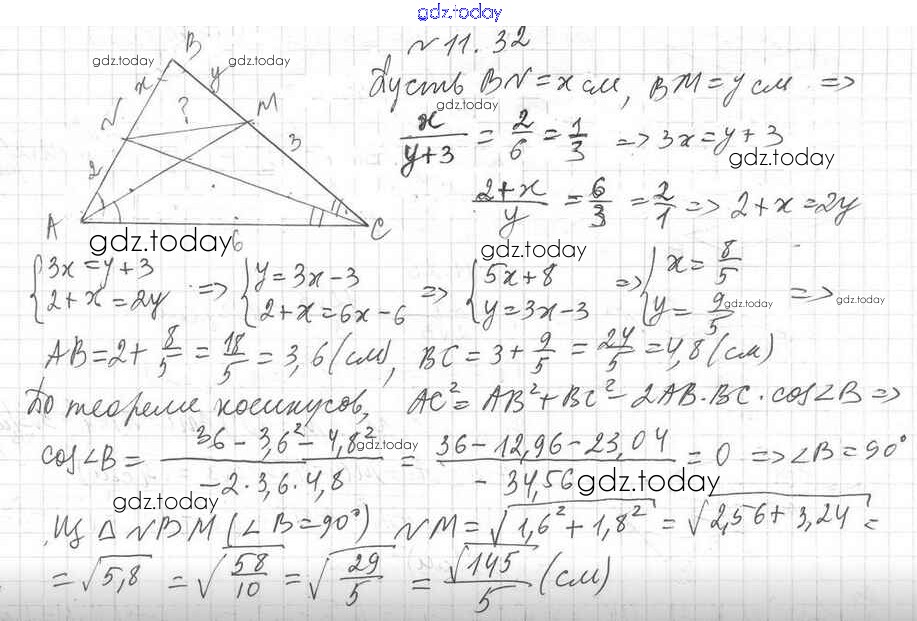 gdz.today
№ 11.32
gdz.today
gdz.today
B
x
y
N
?
M
2
3
A
C
6
Пусть BN = x см, BM = y см =>
gdz.today
x/(y+3) = 2/6 = 1/3 => 3x = y + 3
gdz.today
(2+x)/y = 6/3 = 2/1 => 2 + x = 2y
gdz.today
gdz.today
{3x = y + 3; 2 + x = 2y => {y = 3x - 3; 2 + x = 6x - 6 => {5x + 8; y = 3x - 3 => {x = 8/5; y = 9/5 =>
gdz.today
gdz.today
AB = 2 + 8/5 = 18/5 = 3,6 (см), BC = 3 + 9/5 = 24/5 = 4,8 (см)
По теореме косинусов, AC² = AB² + BC² - 2AB·BC·cos∠B =>
cos∠B = (36 - 3,6² - 4,8²)/(-2·3,6·4,8) = (36 - 12,96 - 23,04)/(-34,56) = 0 => ∠B = 90°
gdz.today
gdz.today
gdz.today
Из △NBM (∠B = 90°) NM = √(1,6² + 1,8²) = √(2,56 + 3,24) =
= √5,8 = √(58/10) = √(29/5) = √145/5 (см)